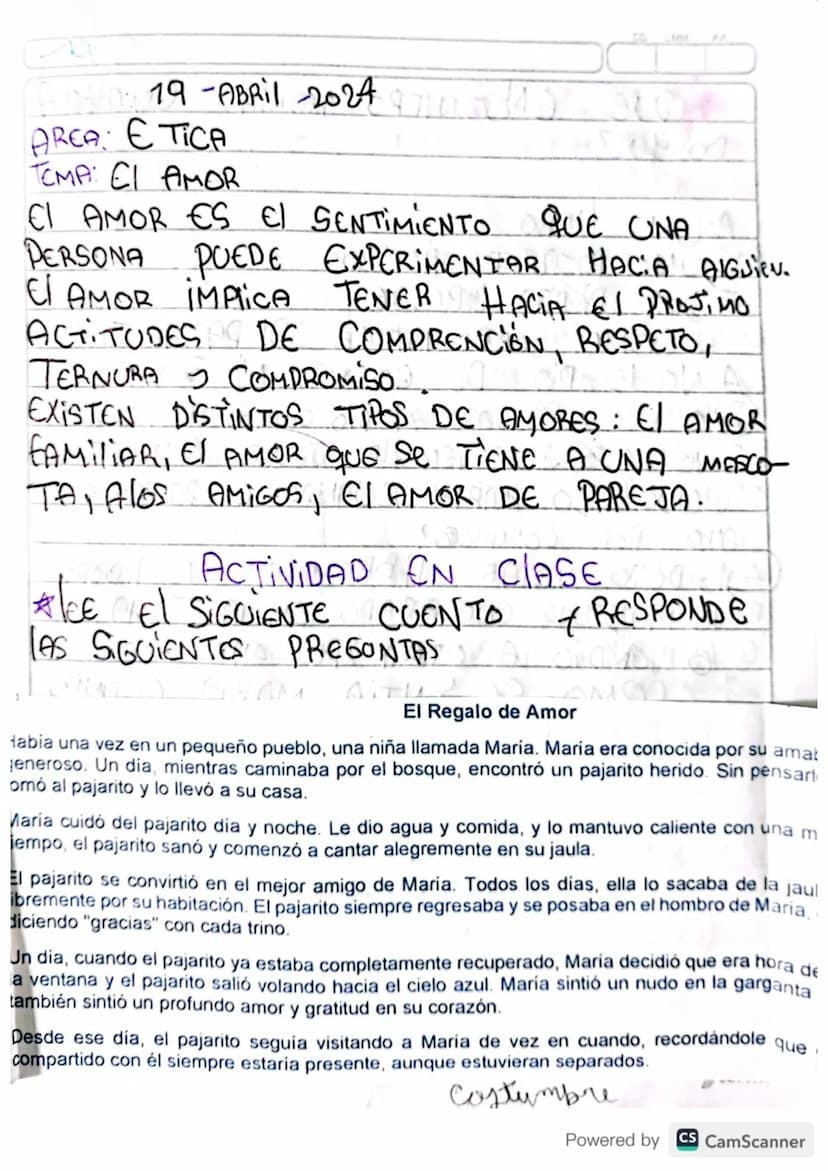 19 - ABRIL - 2024
AREA: ETICA
TEMA: El AMOR
El AMOR ES El SENTIMIENTO QUE UNA
PERSONA PUEDE EXPERIMENTAR HACIA AlGUIEN.
El AMOR IMPLICA TENER HACIA El PROJIMO
ACTITUDES DE COMPRENCIÓN, RESPETO,
TERNURA Y COMPROMISO.
EXISTEN DISTINTOS TIPOS DE AMORES: El AMOR
FAMILIAR, El AMOR QUE SE TIENE A UNA MASCO-
TA, A lOS AMIGOS, El AMOR DE PAREJA.
ACTIVIDAD EN ClASE
*lEE El SIGUIENTE CUENTO Y RESPONDE
lAS SIGUIENTES PREGUNTAS
El Regalo de Amor
Había una vez en un pequeño pueblo, una niña llamada María. María era conocida por su amab
generoso. Un día, mientras caminaba por el bosque, encontró un pajarito herido. Sin pensarl
omó al pajarito y lo llevó a su casa.
María cuidó del pajarito día y noche. Le dio agua y comida, y lo mantuvo caliente con una m
iempo, el pajarito sanó y comenzó a cantar alegremente en su jaula.
El pajarito se convirtió en el mejor amigo de María. Todos los días, ella lo sacaba de la jaul
ibremente por su habitación. El pajarito siempre regresaba y se posaba en el hombro de María,
diciendo "gracias" con cada trino.
Un día, cuando el pajarito ya estaba completamente recuperado, María decidió que era hora de
a ventana y el pajarito salió volando hacia el cielo azul. María sintió un nudo en la garganta
también sintió un profundo amor y gratitud en su corazón.
Desde ese día, el pajarito seguía visitando a María de vez en cuando, recordándole que
compartido con él siempre estaría presente, aunque estuvieran separados.
Costumbre
Powered by CS CamScanner